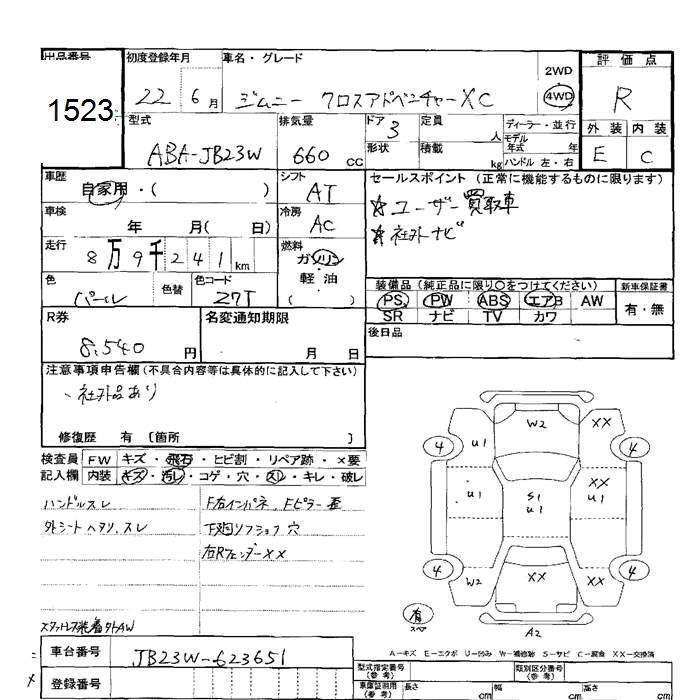 出品番号
1523
初度登録年月
22 6月
車名・グレード
ジムニー クロスアドベンチャーXC
2WD
4WD
評価点
R
外装 内装
E C
型式
ABA-JB23W
排気量
660 CC
ドア 3
形状
定員 人
積載 kg
ディーラー・並行
モデル年式 年
ハンドル 左・右
車歴
自家用・( )
シフト
AT
セールスポイント(正常に機能するものに限ります)
☆ユーザー買取車
☆社外ナビ
車検
年 月( 日)
冷房
AC
走行
8万9千241km
燃料
ガソリン
軽・油
( )
色
パール
色替
色コード
Z7T
装備品(純正品に限り○をつけてください)
新車保証書
PS PW ABS エアB AW
SR ナビ TV カワ
有・無
R券
8,540円
名変通知期限
月 日
後日品
注意事項申告欄(不具合内容等は具体的に記入して下さい)
、社外品あり
修復歴 有 〔箇所 〕
検査員記入欄
FW キズ・飛石・ヒビ割・リペア跡・×要
内装 キズ・汚レ・コゲ・穴・スレ・キレ・破レ
ハンドルスレ
外シートヘタリ、スレ
F右インパネ、Fピラー歪
下廻リフショク 穴
右Rフェンダー××
スタッドレス装着 外AW
W2
XX
U1
4
4
U1
S1
U1
XX
U1
4
4
W2
XX
XX
有
スペア
A2
A-キズ E-エクボ U-凹み W-補修跡 S-サビ C-腐食 XX-交換済
車台番号
JB23W-623651
登録番号
型式指定番号
(参考)
類別区分番号
(参考)
車庫証明用
(参考)
長さ cm
幅 cm
高さ cm